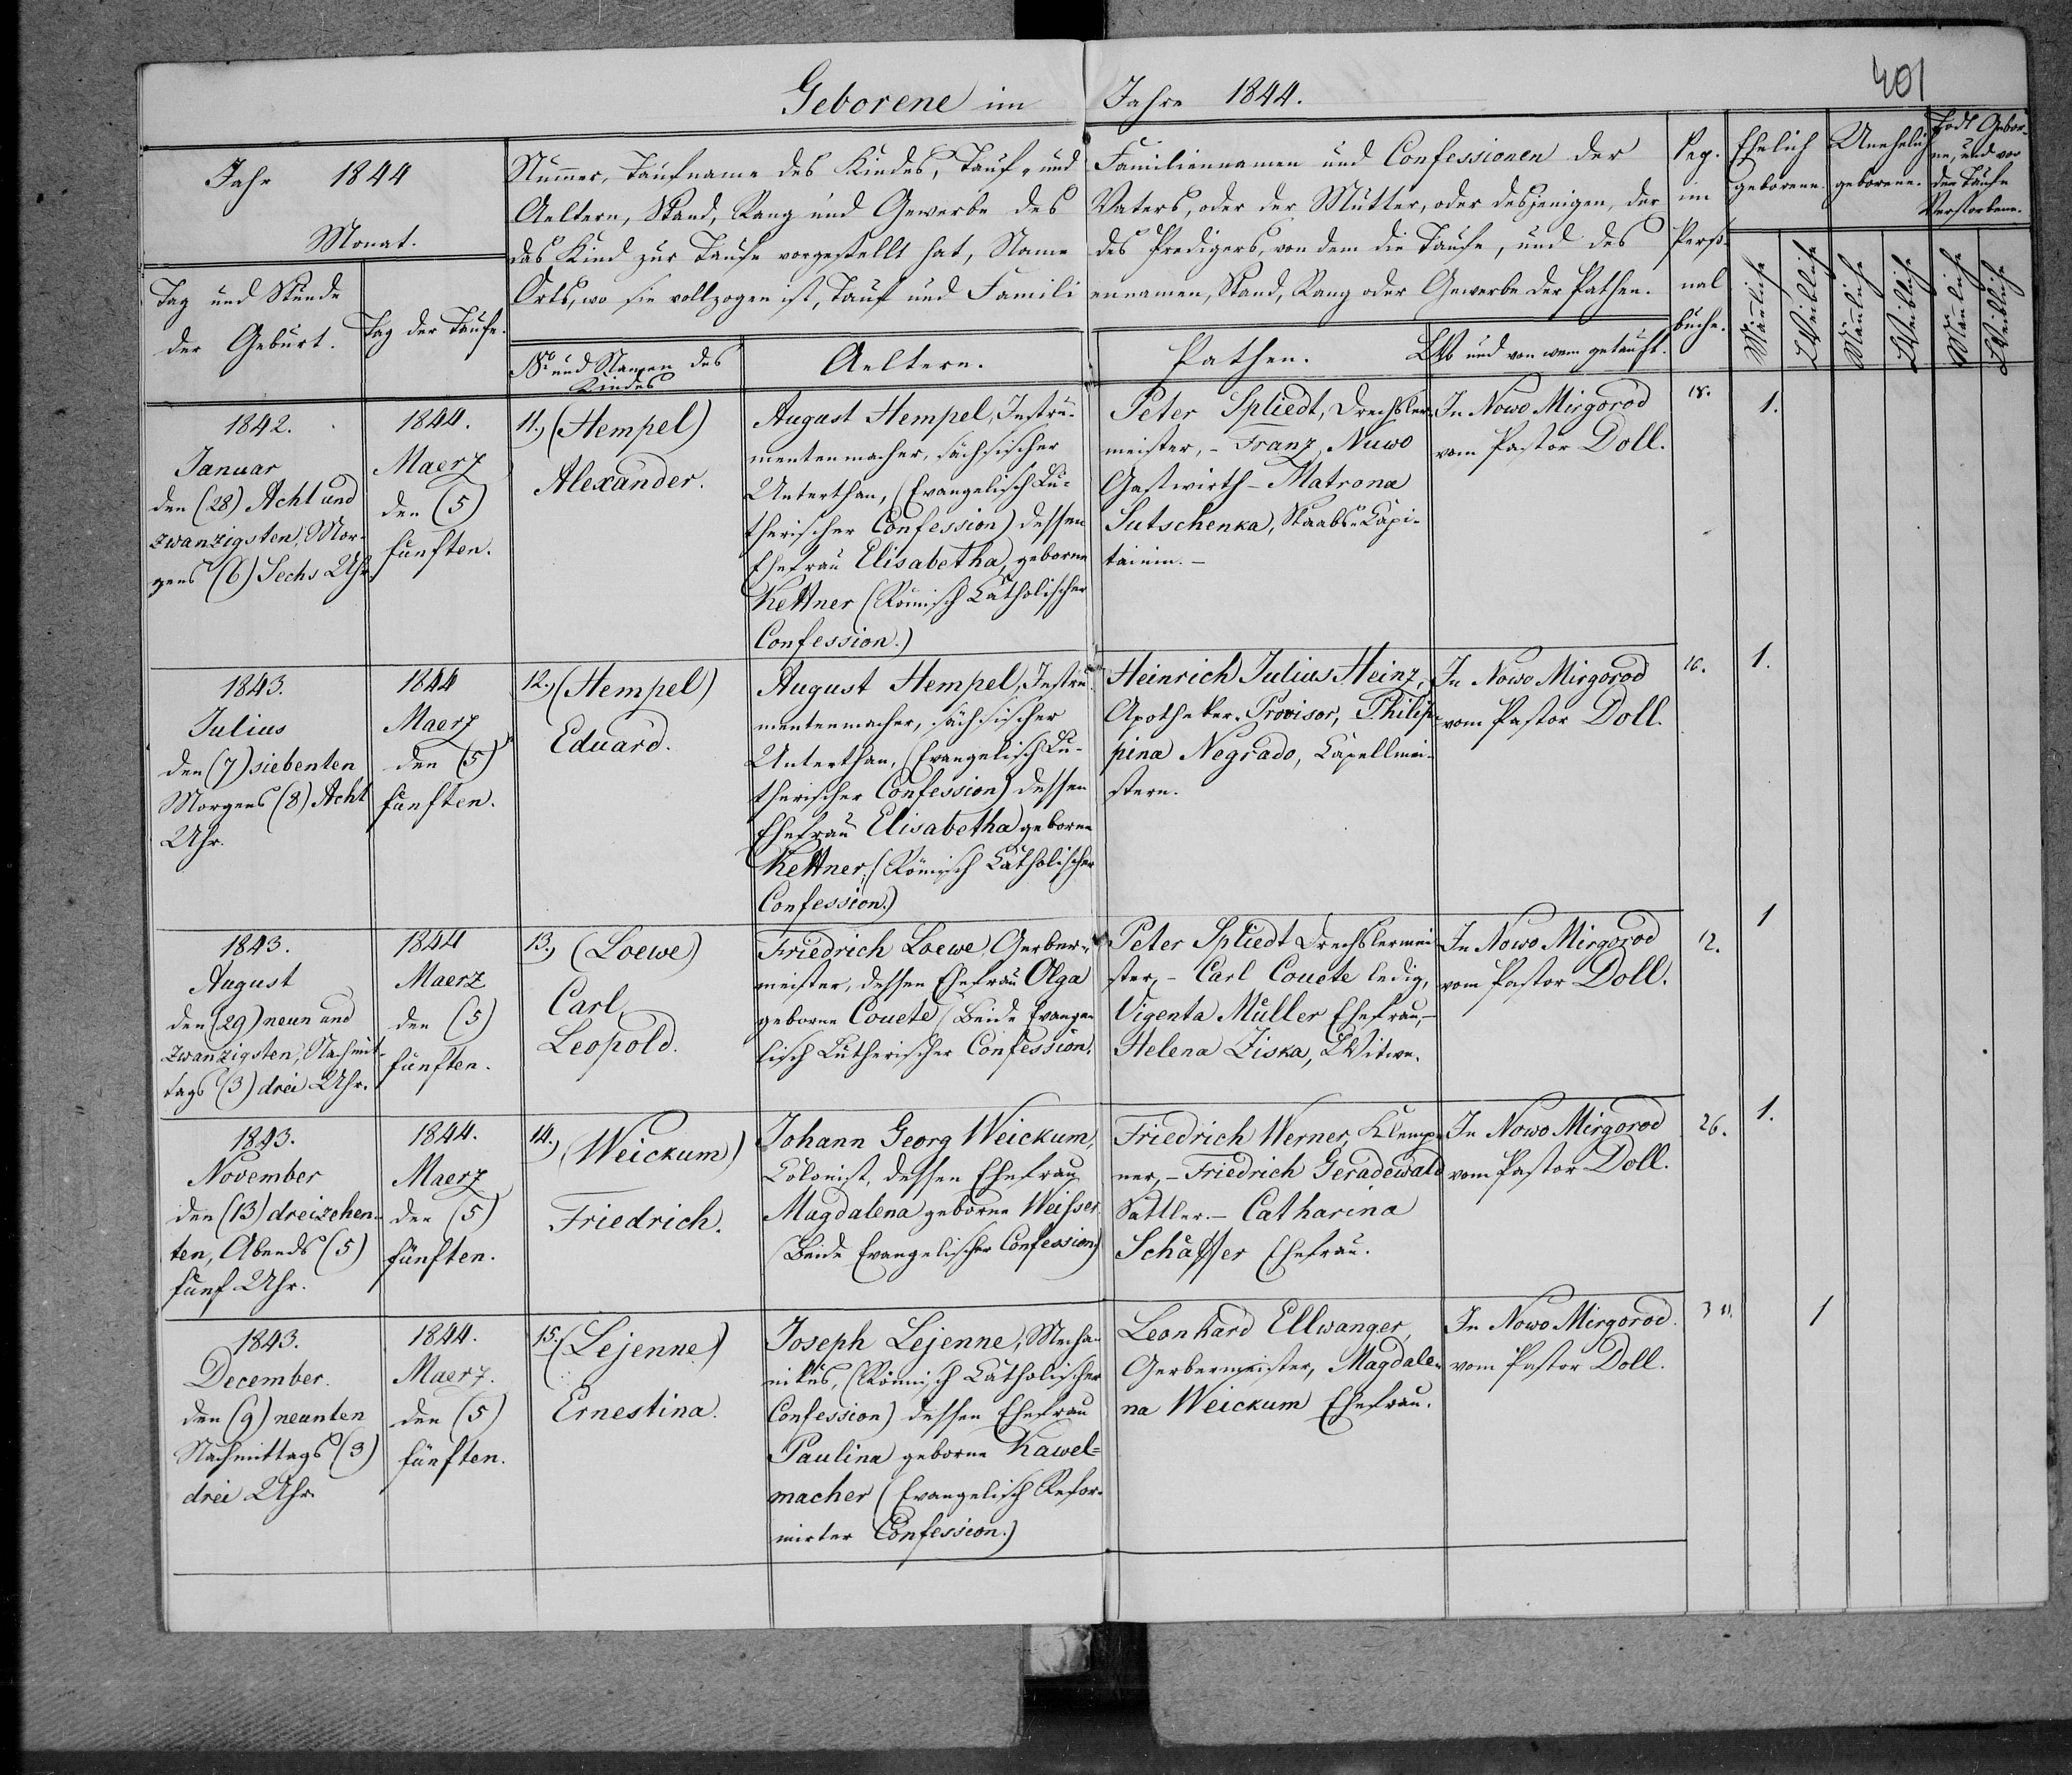 401
Geborene im Jahre 1844.
Jahr 1844
Monat.
Tag und Stunde
der Geburt.
Tag der Taufe.
Nummer, Taufname des Kindes, Tauf- und Familiennamen und Confessionen der
Aeltern, Stand, Rang und Gewerbe des Vaters, oder der Mutter, oder desjenigen, der
das Kind zur Taufe vorgestellt hat, Name des Predigers, von dem die Taufe, und des
Orts, wo sie vollzogen ist, Tauf und Familiennamen, Stand, Rang oder Gewerbe der Pathen.
No und Namen des
Kindes
Aeltern.
Pathen.
Wo und von wem getauft.
Pag.
im
Perso-
nal
buche.
Ehelich
geborene.
Unehelich
geborene.
Todt Gebor-
ne, und vor
der Taufe
Verstorbene.
Mänliche
Weibliche
Mänliche
Weibliche
Mänliche
Weibliche
1842.
Januar
den (28) Acht und
zwanzigsten, Mor-
gens (6) Sechs Uhr
1844.
Maerz
den (5)
fünften.
11., (Hempel)
Alexander.
August Hempel, Instru-
mentenmacher, sächsischer
Unterthan, (Evangelisch Lu-
therischer Confession) dessen
Ehefrau Elisabetha, geborne
Kettner (Römisch Katholischer
Confession.)
Peter Spliedt, Drechsler-
meister, - Franz Nuwo
Gastwirth - Matrona
Sutschenka, Staabs-Kapi-
tainin. -
In Nowo Mirgorod
vom Pastor Doll.
18.
1.
1843.
Julius
den (7) siebenten
Morgens (8) Acht
Uhr.
1844
Maerz
den (5)
fünften.
12., (Hempel)
Eduard.
August Hempel, Instru-
mentenmacher, sächsischer
Unterthan, (Evangelisch Lu-
therischer Confession) dessen
Ehefrau Elisabetha geborne
Kettner, (Römisch Katholischer
Confession.)
Heinrich Julius Heinz,
Apotheker-Provisor, Philip-
pina Negrado, Kapellmei-
stern.
In Nowo Mirgorod
vom Pastor Doll.
1.
1843.
August
den (29) neun und
zwanzigsten, Nachmit-
tags (3) drei Uhr.
1844
Maerz
den (5)
fünften.
13., (Loewe)
Carl
Leopold.
Friedrich Loewe, Gerber-
meister, dessen Ehefrau Olga
geborne Couete (Beide Evange-
lisch Lutherischer Confession.
Peter Spliedt Drechslermei
ster, - Carl Couete ledig,
Vigenta Müller Ehefrau, -
Helena Ziska, Witwe.
In Nowo Mirgorod
vom Pastor Doll.
12.
1
1843.
November
den (13) dreizehen-
ten, Abends (5)
fünf Uhr.
1844.
Maerz
den (5)
fünften.
14., (Weickum)
Friedrich.
Johann Georg Weickum,
Colonist, dessen Ehefrau
Magdalena geborne Weisser.
(Beide Evangelischer Confession)
Friedrich Werner, Klemp-
ner, - Friedrich Geradewald
Sattler. - Catharina
Schäffer Ehefrau.
In Nowo Mirgorod
vom Pastor Doll.
26.
1.
1843.
December.
den (9) neunten
Nachmittags (3)
drei Uhr.
1844.
Maerz.
den (5)
fünften.
15. (Lejenne)
Ernestina.
Joseph Lejenne, Mecha-
nikus, (Römisch Katholischer
Confession) dessen Ehefrau
Paulina geborne Kawel-
macher (Evangelisch Refor-
mirter Confession.)
Leonhard Ellwanger,
Gerbermeister, Magdale-
na Weickum Ehefrau.
In Nowo Mirgorod.
vom Pastor Doll.
1